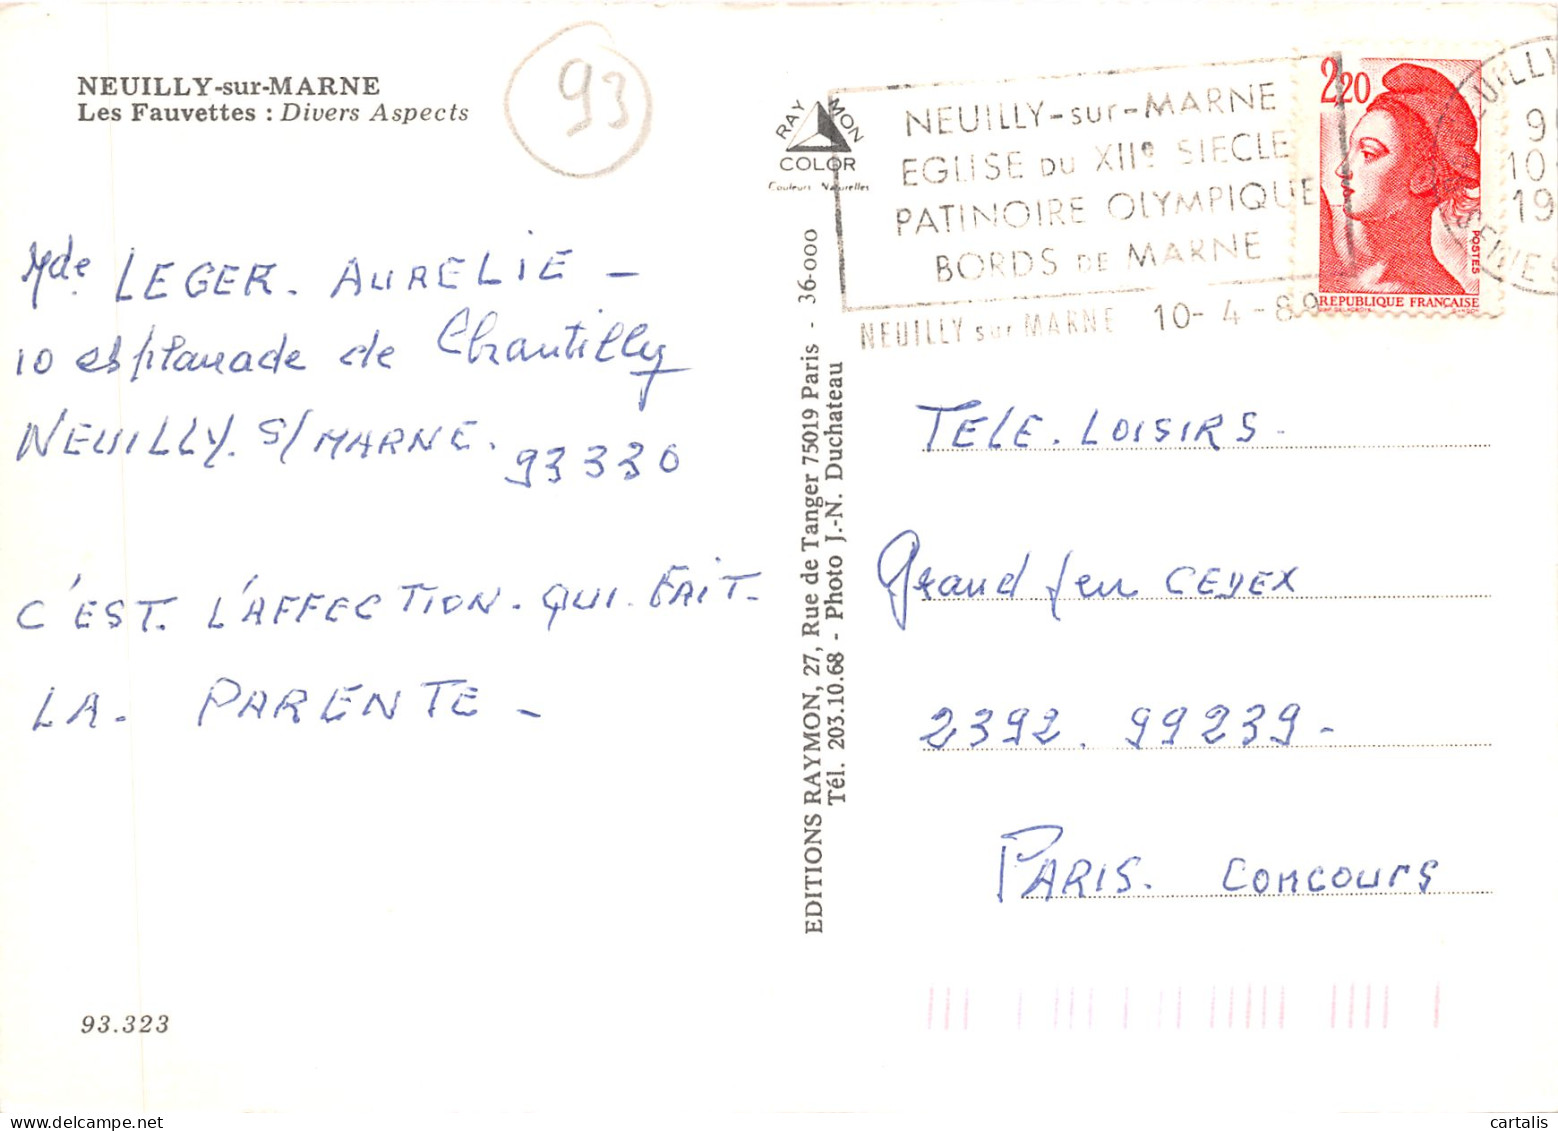 NEUILLY-sur-MARNE
Les Fauvettes : Divers Aspects
93
RAYMON
COLOR
Couleurs Naturelles
NEUILLY-sur-MARNE
EGLISE DU XIIe SIECLE
PATINOIRE OLYMPIQUE
BORDS DE MARNE
NEUILLY sur MARNE 10-4-89
2,20
POSTES
REPUBLIQUE FRANÇAISE
Mde LEGER. AURELIE -
10 esplanade de Chantilly
NEUILLY. S/MARNE. 93330
C'EST. L'AFFECTION. QUI. FAIT.
LA. PARENTE -
EDITIONS RAYMON, 27, Rue de Tanger 75019 Paris - 36-000
Tél. 203.10.68 - Photo J.-N. Duchateau
TELE. LOISIRS -
Grand Jeu CEDEX
2392. 99239 -
PARIS. CONCOURS
93.323
cartalis